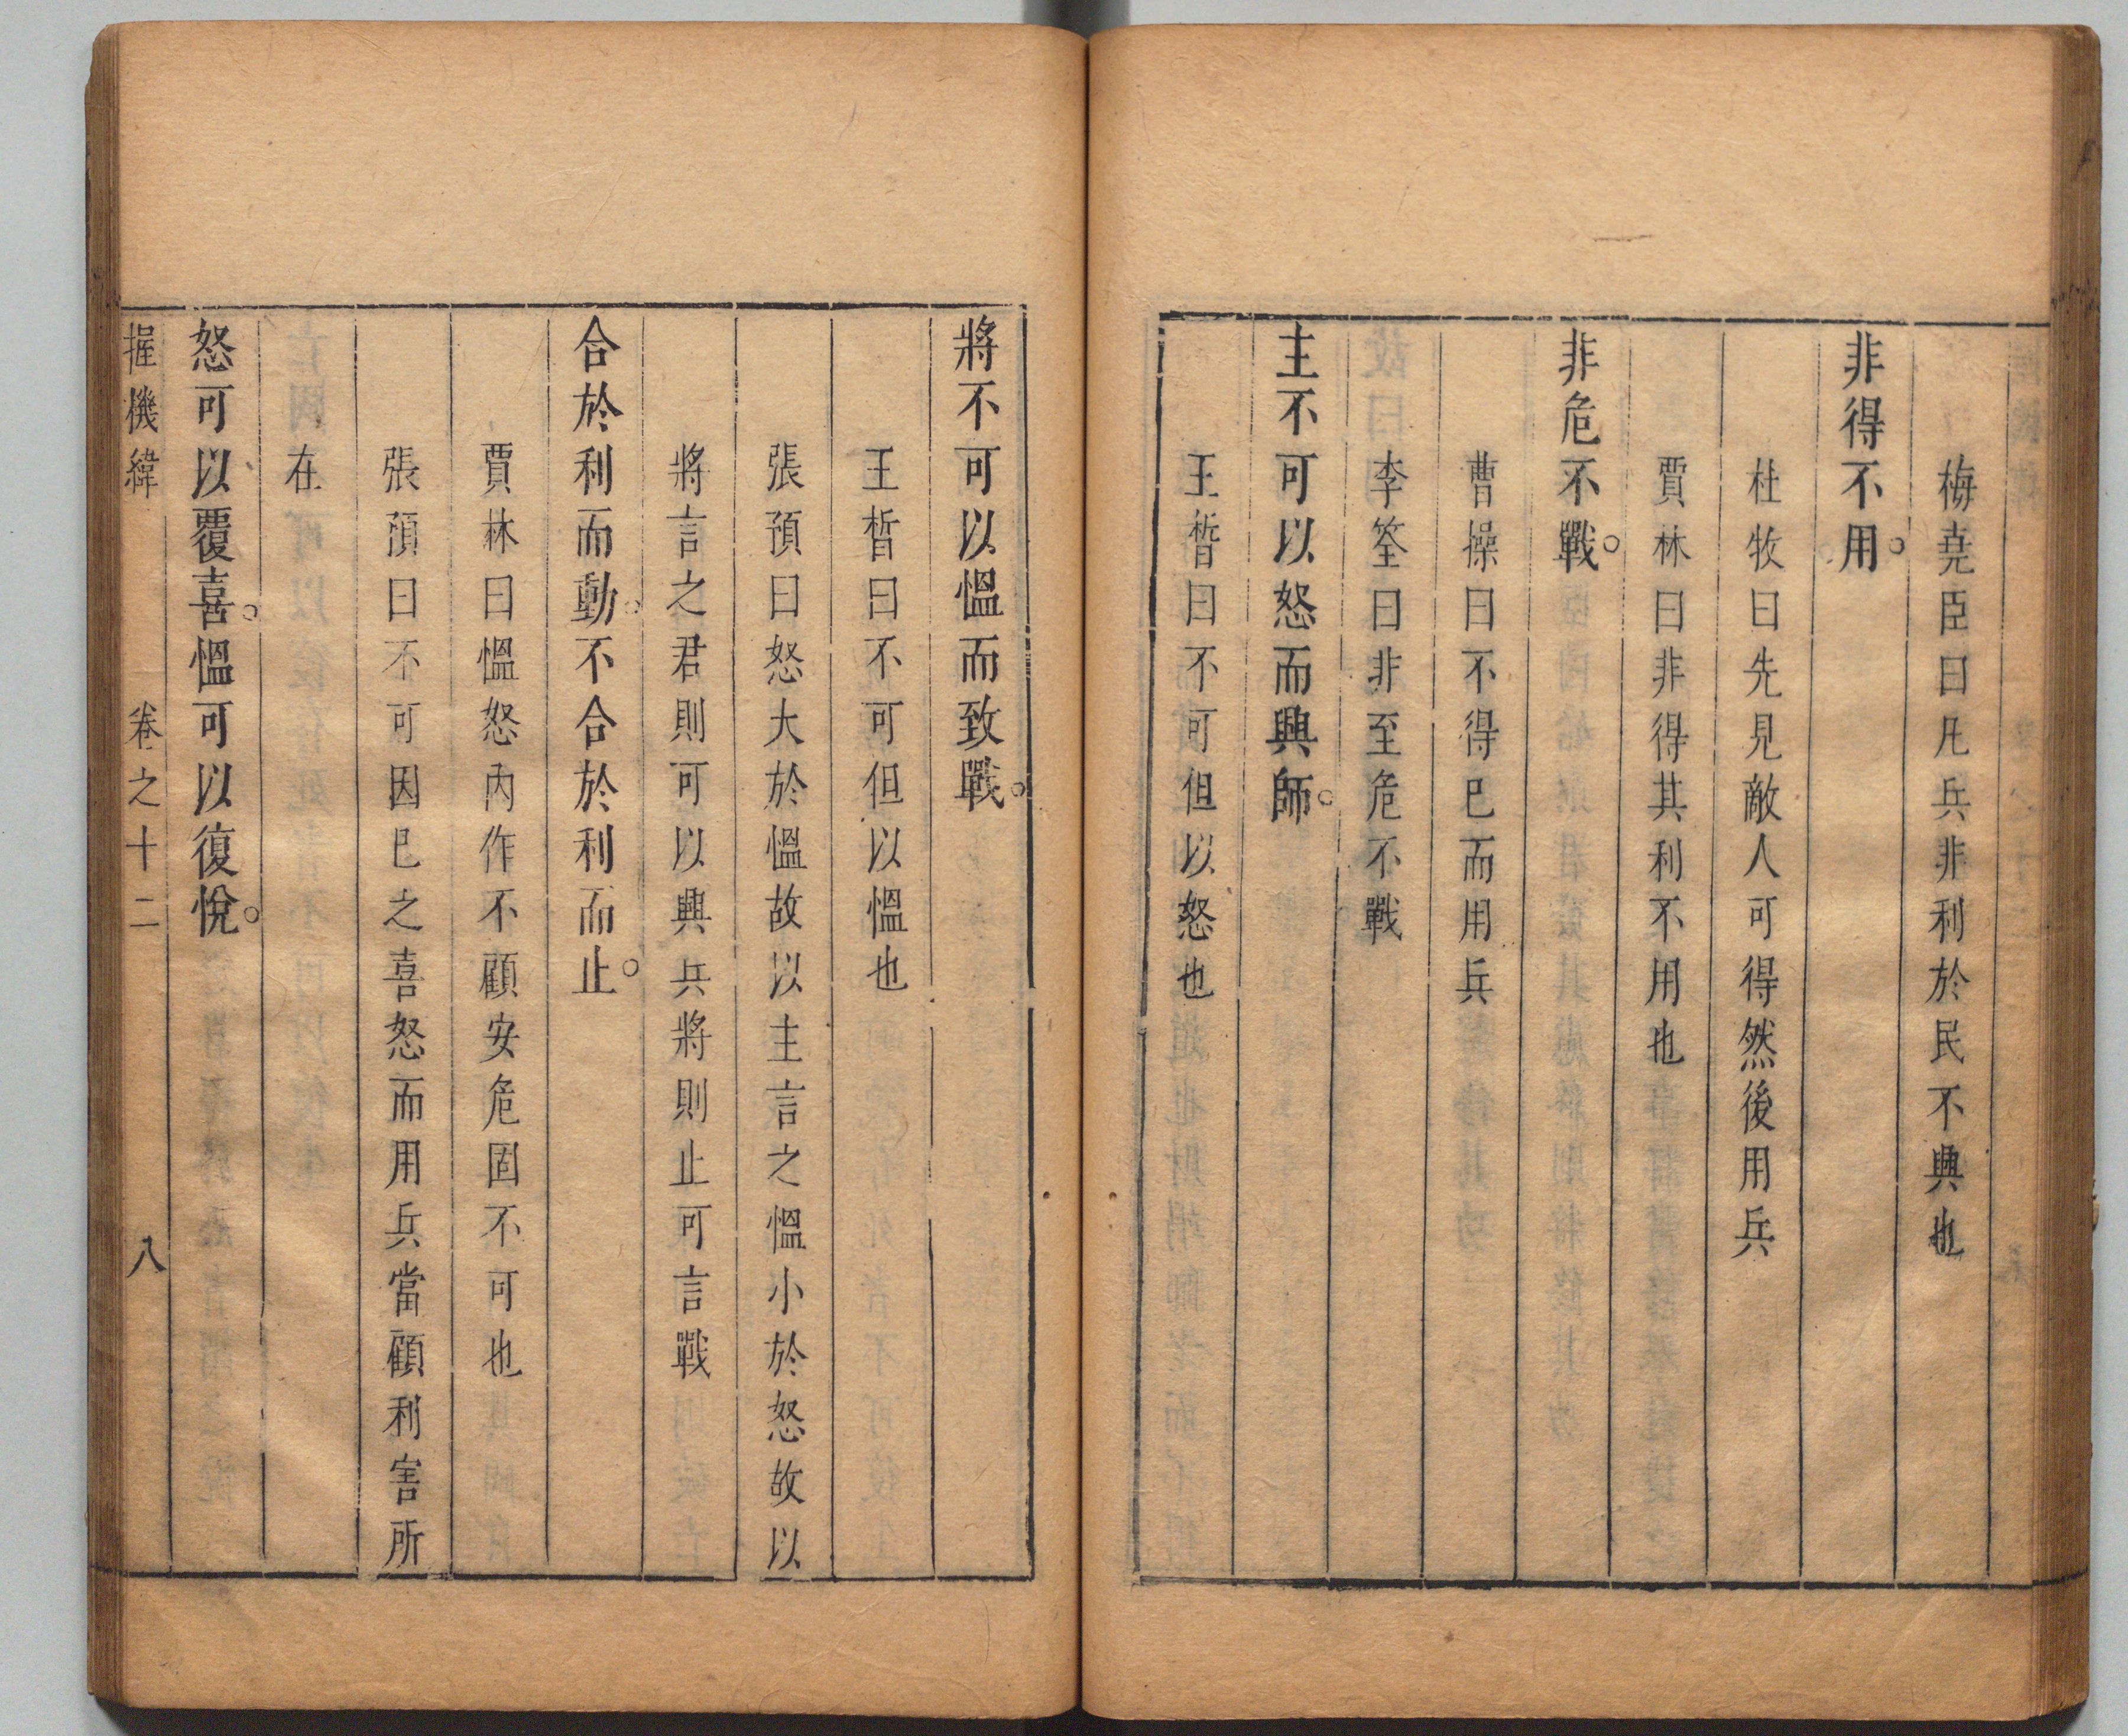 梅堯臣曰凡兵非利於民不興也
非得不用。
杜牧曰先見敵人可得然後用兵
賈林曰非得其利不用也
非危不戰。
曹操曰不得已而用兵
李筌曰非至危不戰
主不可以怒而興師。
王晳曰不可但以怒也
將不可以慍而致戰。
王晳曰不可但以慍也
張預曰怒大於慍故以主言之慍小於怒故以
將言之君則可以興兵將則止可言戰
合於利而動。不合於利而止。
賈林曰慍怒內作不顧安危固不可也
張預曰不可因已之喜怒而用兵當顧利害所
在
怒可以覆喜。慍可以復悅。
握機緯 卷之十二 八